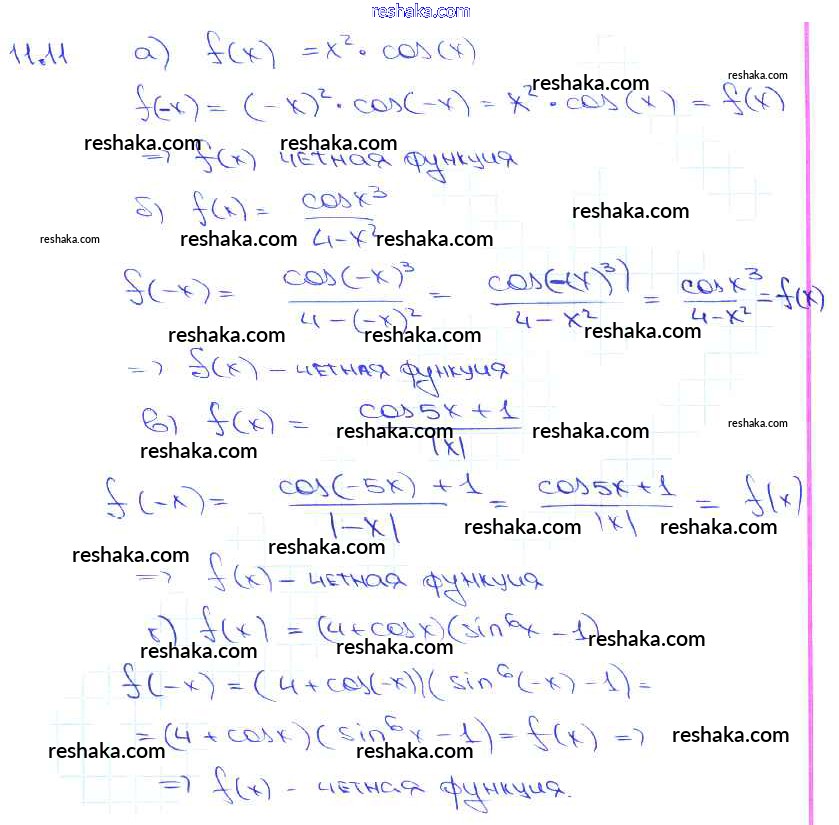 reshaka.com
11.11 а) f(x) = x² · cos(x)
reshaka.com reshaka.com
f(-x) = (-x)² · cos(-x) = x² · cos(x) = f(x)
reshaka.com reshaka.com reshaka.com
=> f(x) четная функция
б) f(x) = cosx³ / 4-x²
reshaka.com reshaka.com reshaka.com reshaka.com
f(-x) = cos(-x)³ / 4-(-x)² = cos(-(x)³) / 4-x² = cosx³ / 4-x² = f(x)
reshaka.com reshaka.com reshaka.com
=> f(x) - четная функция
в) f(x) = cos5x+1 / |x|
reshaka.com reshaka.com reshaka.com reshaka.com
f(-x) = cos(-5x)+1 / |-x| = cos5x+1 / |x| = f(x)
reshaka.com reshaka.com reshaka.com reshaka.com
=> f(x) - четная функция
г) f(x) = (4+cosx)(sin⁶x-1)
reshaka.com reshaka.com reshaka.com
f(-x) = (4+cos(-x))(sin⁶(-x)-1) =
= (4+cosx)(sin⁶x-1) = f(x) =>
reshaka.com reshaka.com reshaka.com
=> f(x) - четная функция.